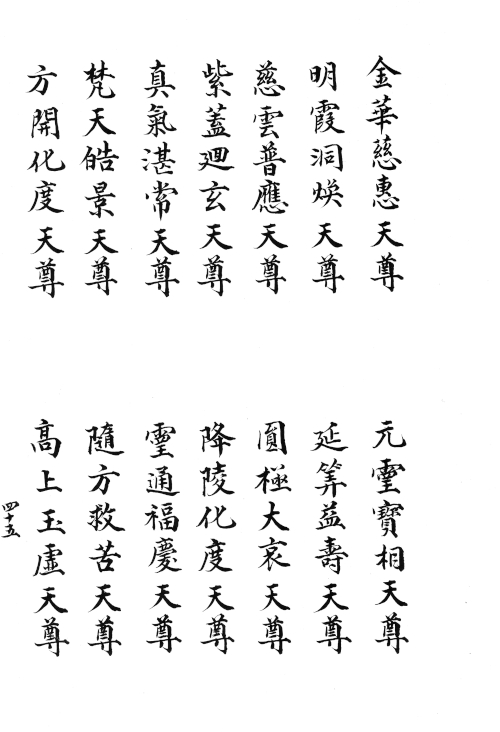 金華慈惠天尊
元霻寶相天尊
明霞洞煥天尊
延筭益壽天尊
慈雲普應天尊
圓極大哀天尊
紫蓋廻玄天尊
降陵化度天尊
真氣湛常天尊
霻通福慶天尊
梵天皓景天尊
隨方救苦天尊
方開化度天尊
高上玉虛天尊
四十五